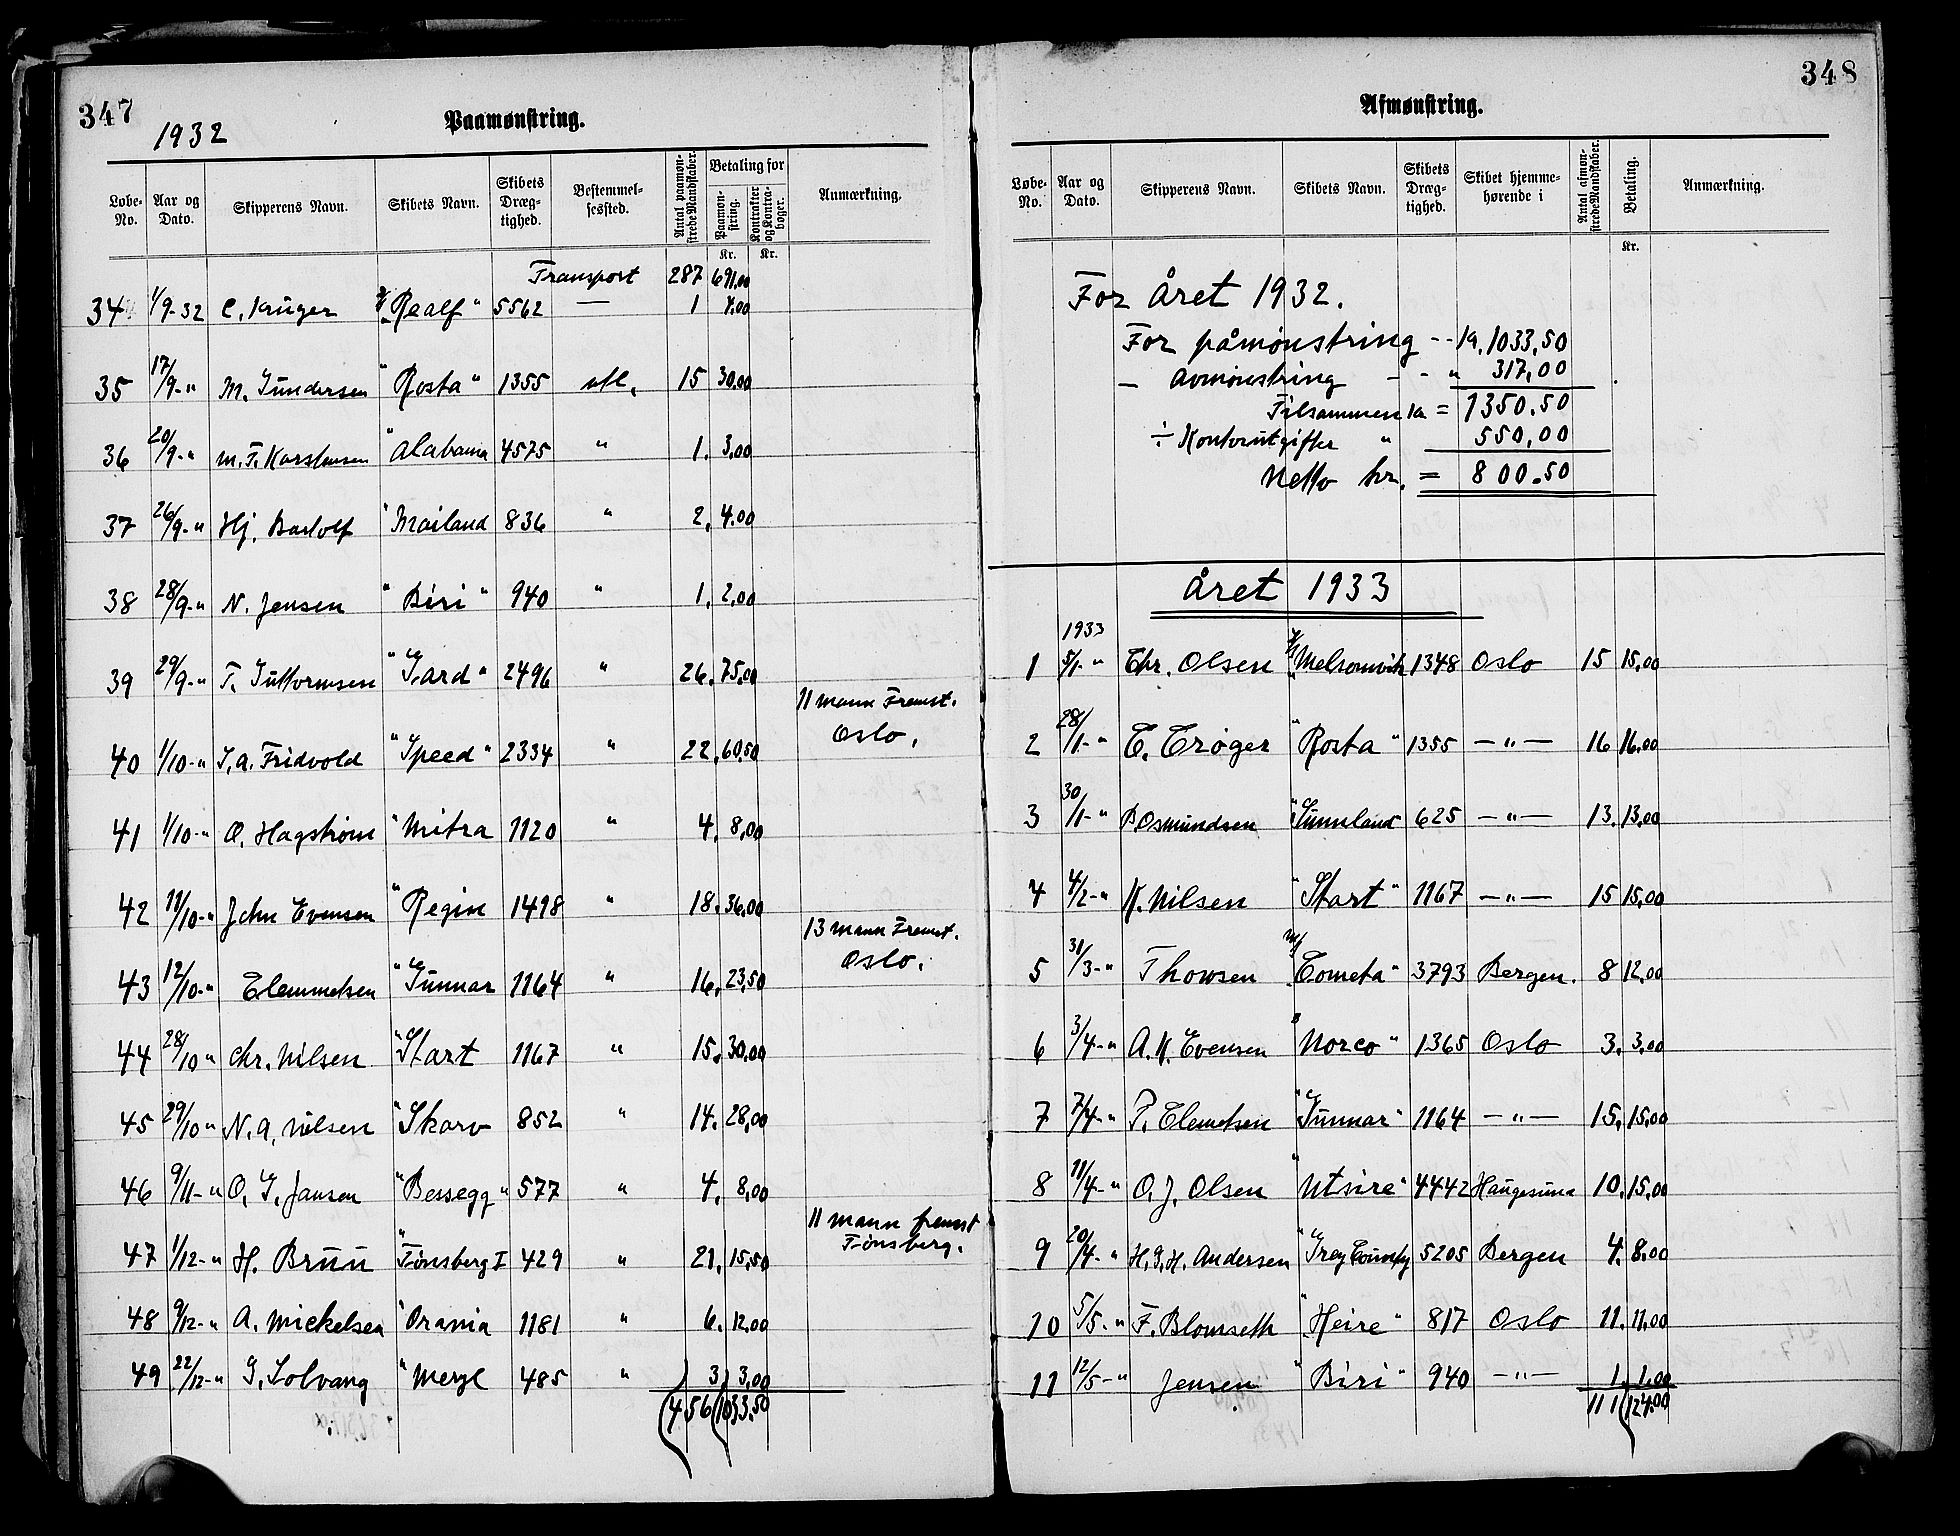 347
1932
Paamønstring.
Løbe-No. Aar og Dato. Skipperens Navn. Skibets Navn. Skibets Dræg-tighed. Bestemmel-sessted. Antal paamøn-strede Mandskaber. Betaling for Paamøn-string. Kontrakter og Kontra-boger. Anmærkning.
Kr. Kr.
Transport 287 691.00
34 1/9-32 C. Krüger "Realf" 5562 — 1 4.00
35 17/9-" M. Gundersen "Rosta" 1355 utl. 15 30.00
36 20/9-" M. T. Karstensen "Alabama 4575 " 1. 3.00
37 26/9-" Hj. "Mailand 836 " 2. 4.00
38 28/9-" N. Jensen "Biri" 940 " 1. 2.00
39 29/9-" T. Guttormsen "Gard" 2496 " 26. 75.00
11 mann Fremst. Oslo.
40 1/10-" S. A. Fridvold "Speed" 2334 " 22. 60.50
41 1/10-" O. Hagstrøm "Mitra 1120 " 4. 8.00
42 11/10-" John Evensen "Regin 1498 " 18. 36.00
13 mann Fremst. Oslo.
43 12/10-" Clemmetsen "Gunnar 1164 " 16. 23.50
44 28/10 " Chr. Nilsen "Start 1167 " 15. 30.00
45 29/10 " N. A. Nilsen "Skarv 852 " 14. 28.00
46 9/11-" O. G. Jansen "Bessegg" 577 " 4. 8.00
11 mann fremst Tønsberg.
47 1/12-" H. Bruu "Tønsberg I 429 " 21. 15.50
48 9/12-" A. Mickelsen "Orania 1181 " 6. 12.00
49 22/12-" G. Solvang "Meryl 485 " 3 3.00
456 1033.50
348
Afmønstring.
Løbe-No. Aar og Dato. Skipperens Navn. Skibets Navn. Skibets Dræg-tighed. Skibet hjemme-hørende i Antal afmøn-strede Mandskaber. Betaling. Anmærkning.
Kr.
For året 1932.
For påmønstring -- kr. 1033,50
— Avmønstring - - " 317,00
Tilsammen kr = 1350.50
÷ Kontorutgifter " 550,00
Netto kr. = 800.50
Året 1933
1933
1 5/1-" Chr. Olsen "Melsomvik 1348 Oslo 15 15.00
2 28/1-" C. Crøger "Rosta" 1355 —"— 16 16.00
3 30/1-" B Osmundsen "Sunnland 625 —"— 13. 13.00
4 4/2-" K. Nilsen "Start" 1167 —"— 15 15.00
5 31/3-" Thowsen M/"Cometa" 3793 Bergen. 8 12.00
6 3/4-" A. K. Evensen "Norco" 1365 Oslo 3. 3.00
7 7/4-" T. Clemetsen "Gunnar" 1164 —"— 15. 15.00
8 11/4-" O. J. Olsen "Utsire" 4442 Haugesund 10. 15.00
9 20/4-" H. G. H. Andersen "Grey County 5205 Bergen 4. 8.00
10 5/5-" F. Blomseth "Heire" 817 Oslo 11. 11.00
11 12/5-" Jensen "Biri" 940 —"— 1. 1.00
111 124.00